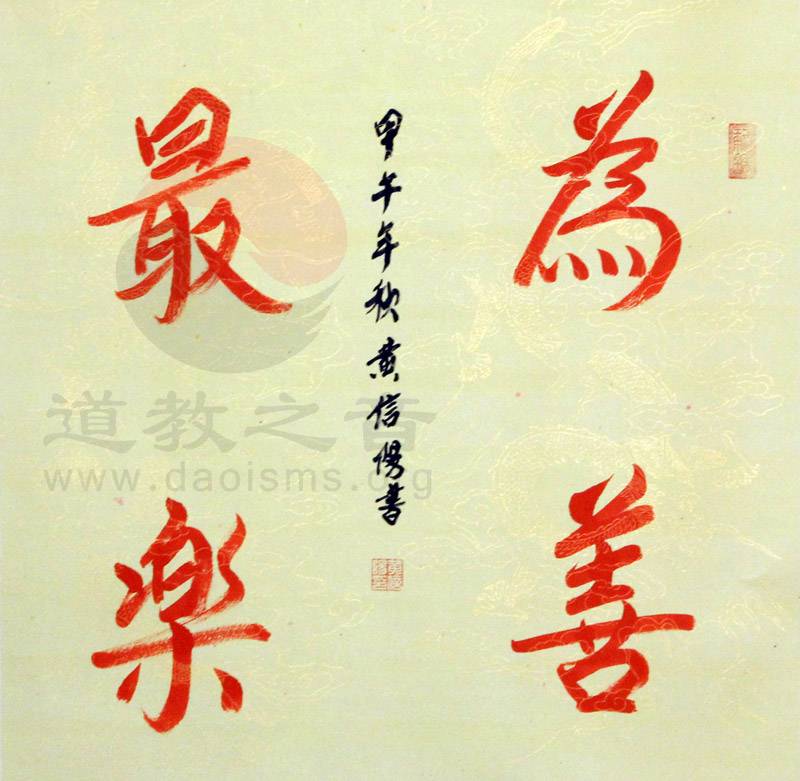 為善
最楽
甲午年秋黄信陽書
道教之音
www.daoisms.org